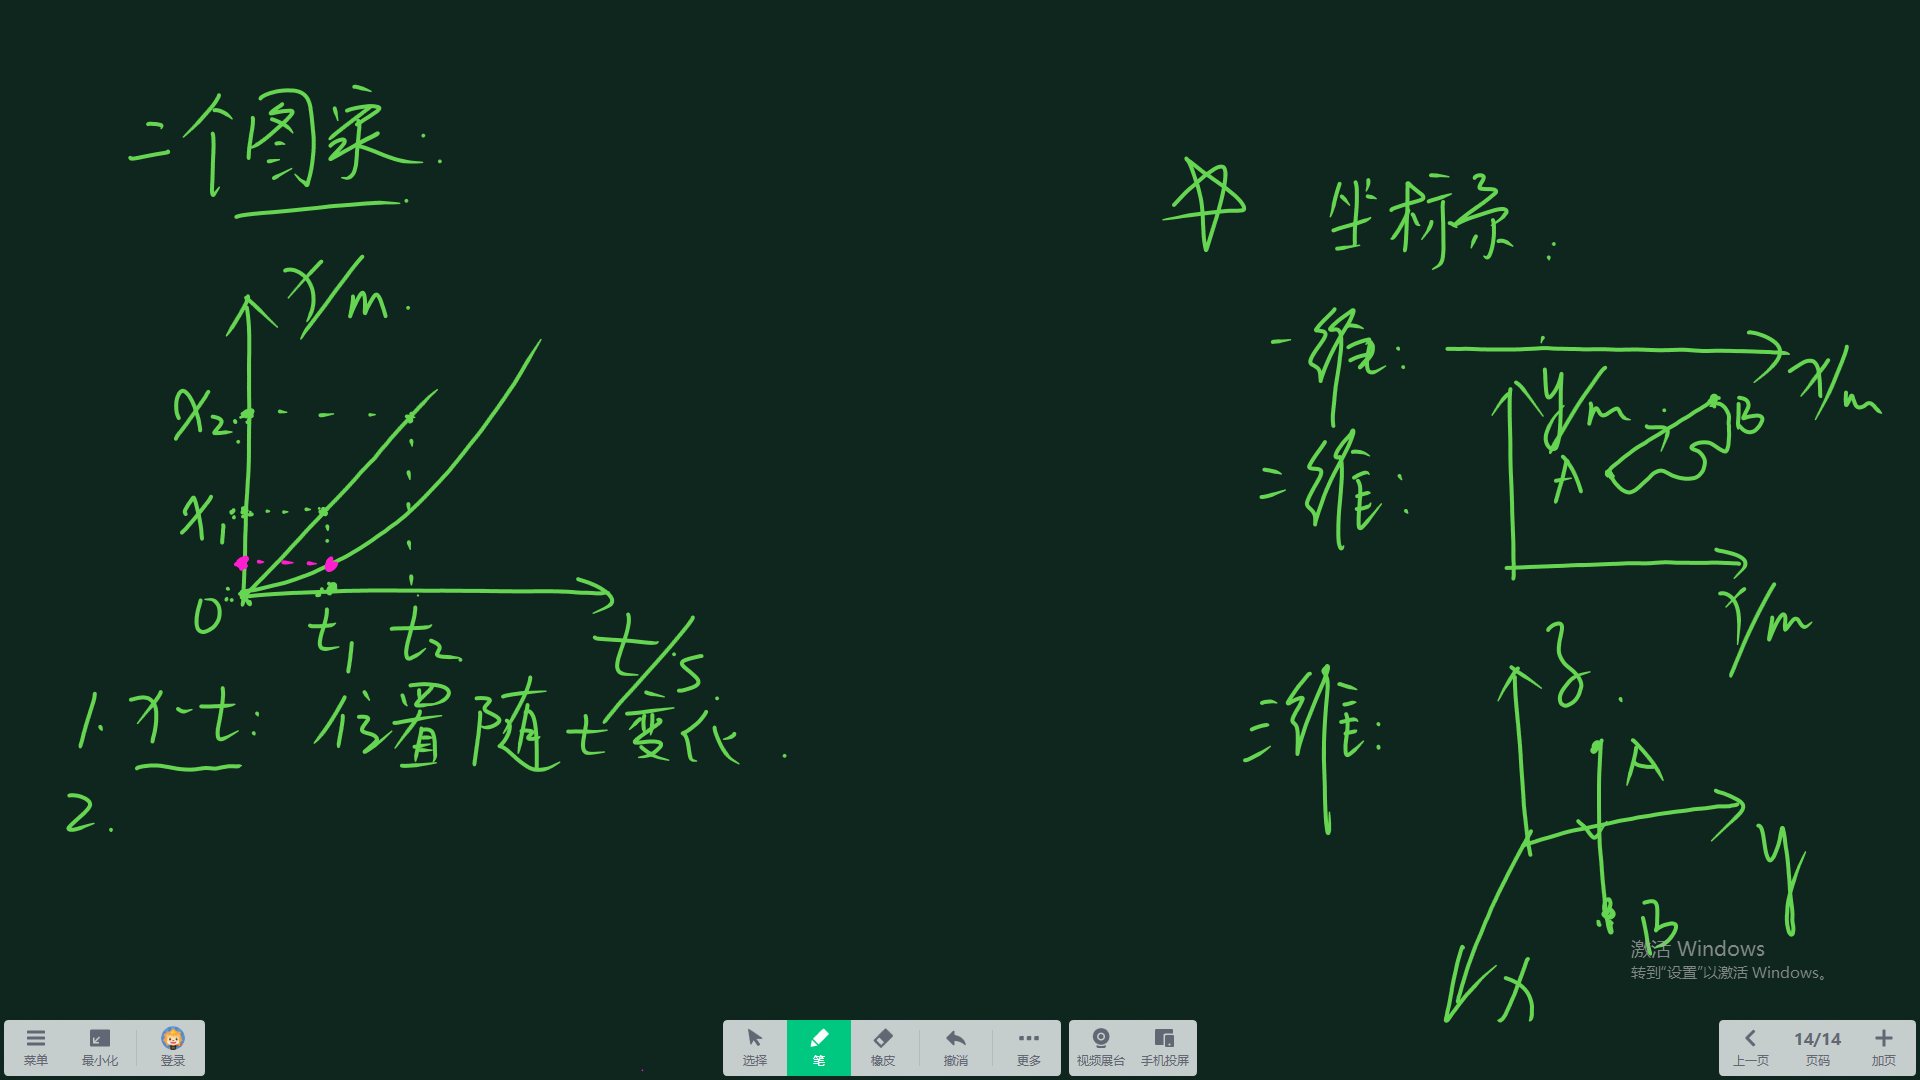 二个图象:
x/m
x₂
x₁
0
t₁ t₂
t/s
1. x-t: 位置随t变化.
2.
☆ 坐标系:
一维:
x/m
二维:
y/m
A
B
x/m
三维:
z
A
y
B
x
激活 Windows
转到“设置”以激活 Windows。
菜单 最小化 登录
选择 笔 橡皮 撤消 更多
视频展台 手机投屏
上一页 14/14 页码 加页